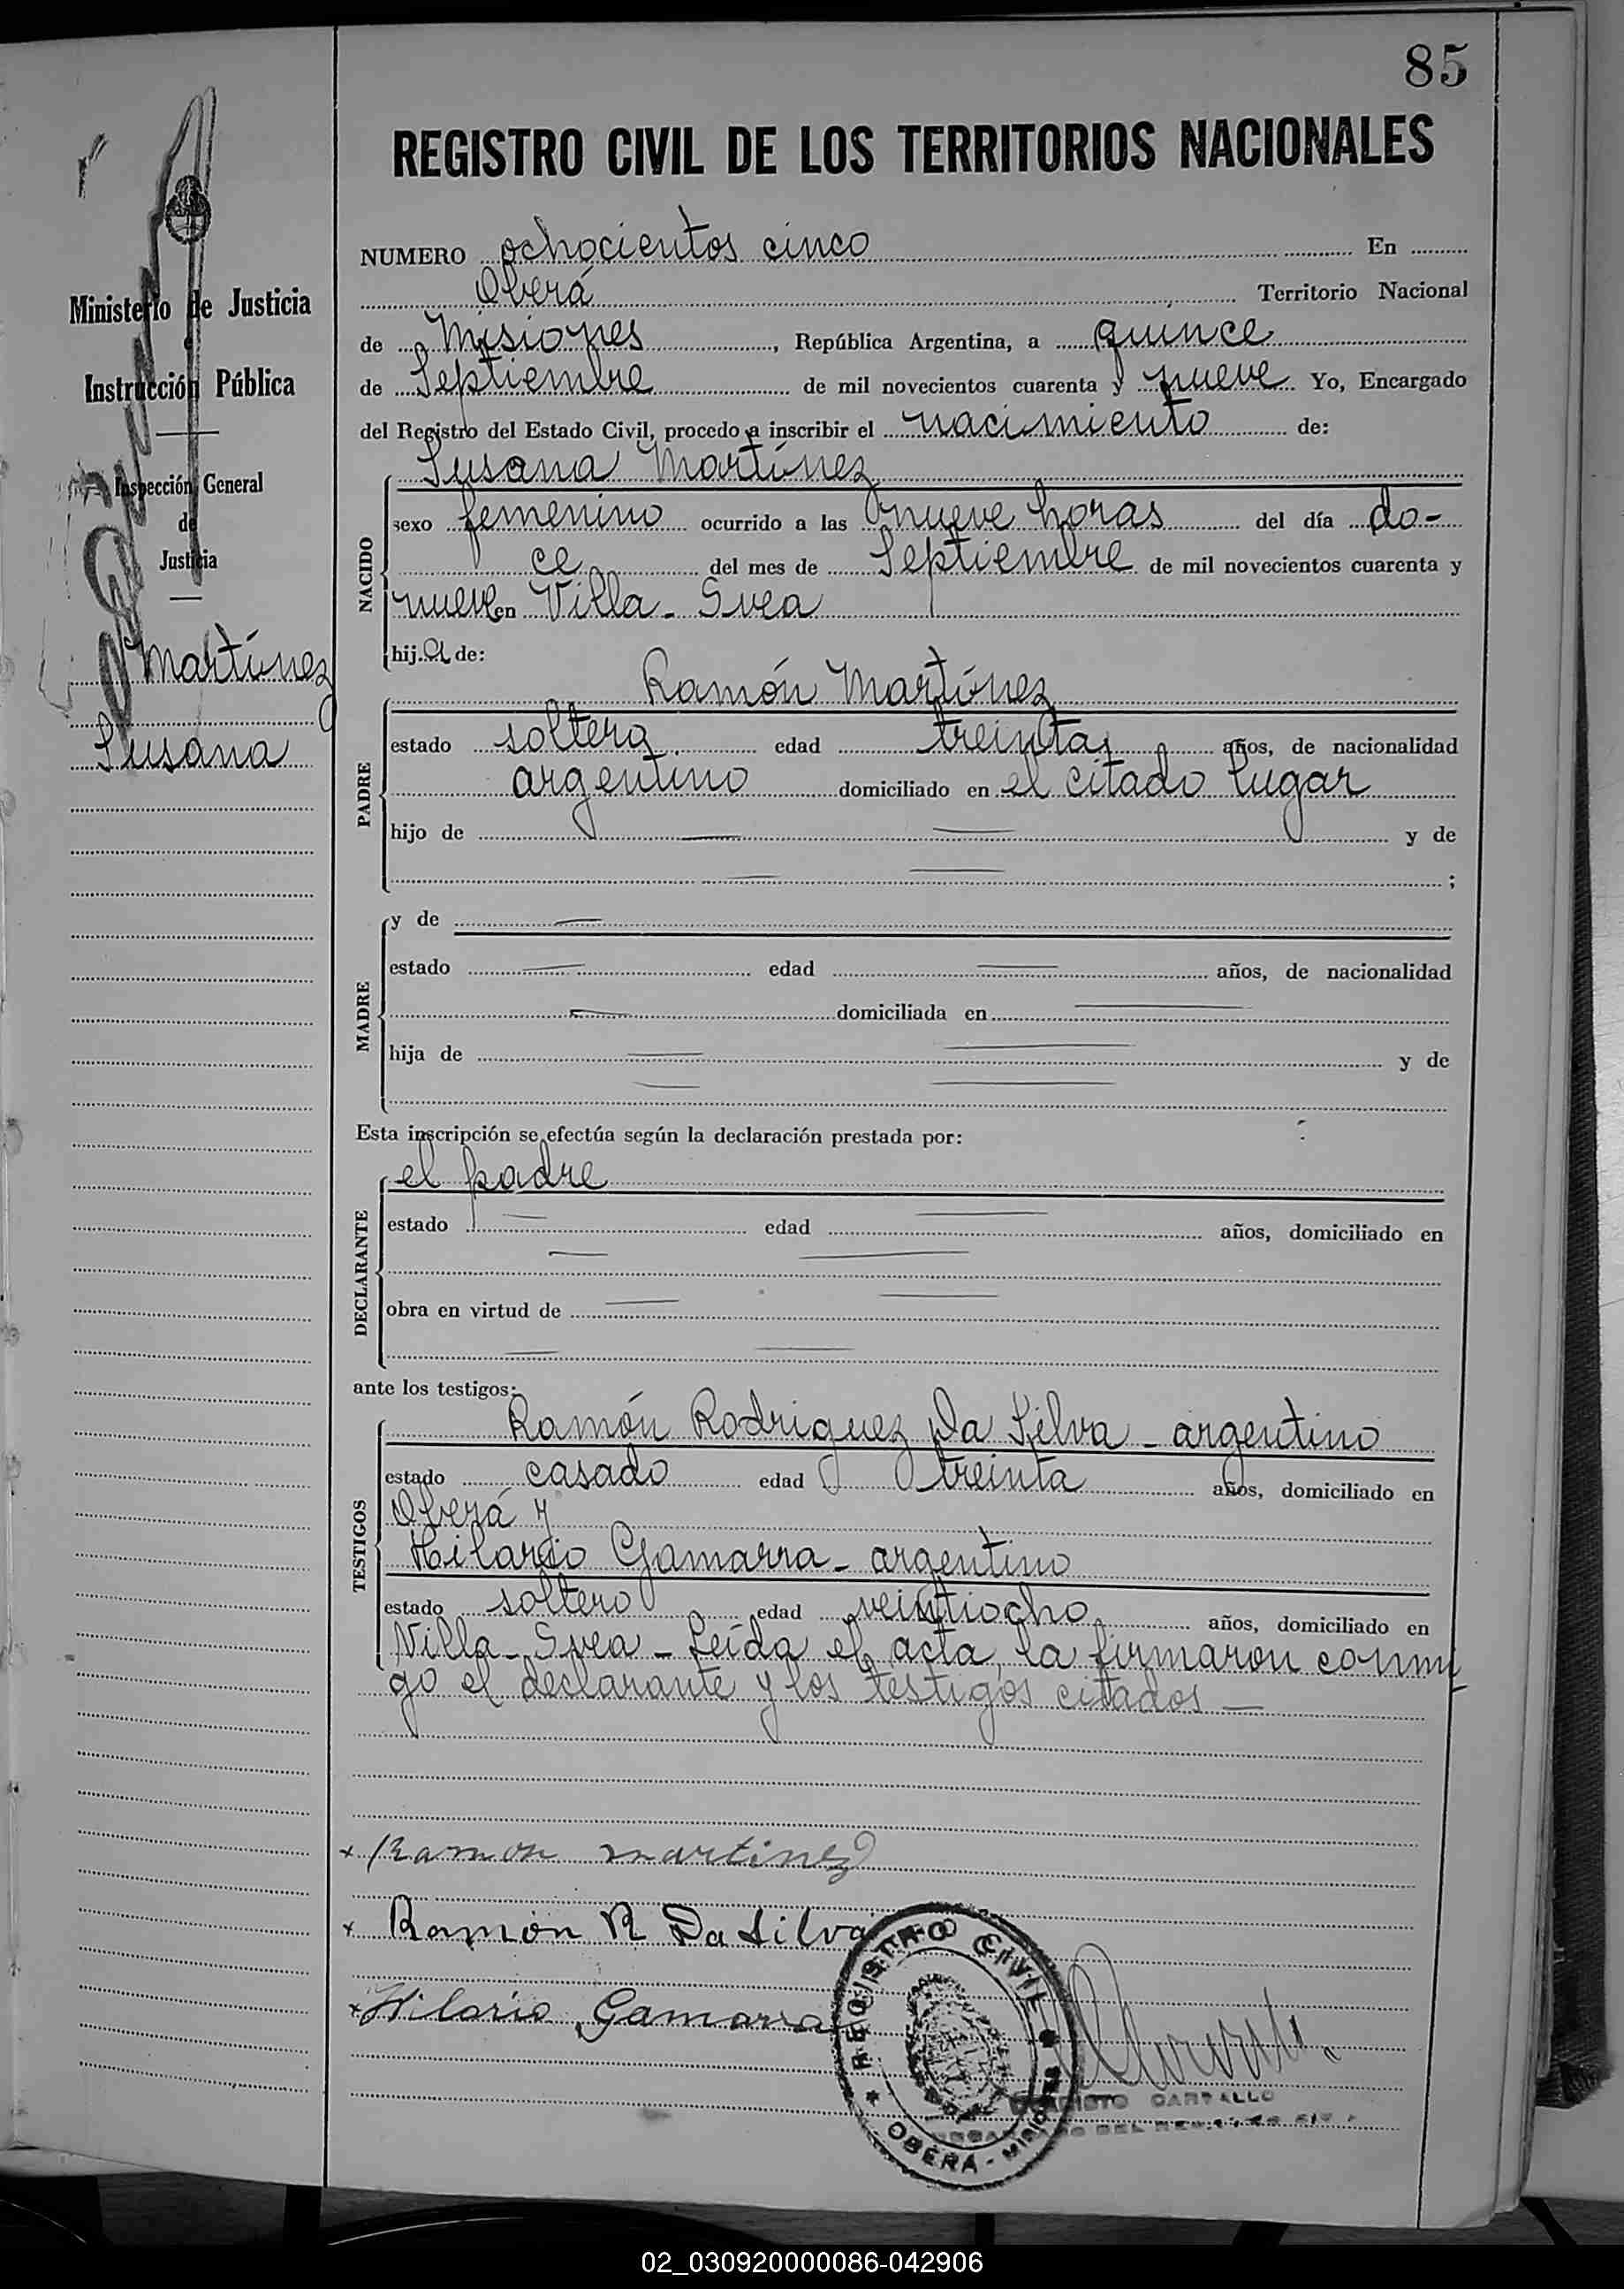 85
REGISTRO CIVIL DE LOS TERRITORIOS NACIONALES
NUMERO ochocientos cinco En
Oberá Territorio Nacional
de Misiones, República Argentina, a quince
de Septiembre de mil novecientos cuarenta y nueve Yo, Encargado
del Registro del Estado Civil, procedo a inscribir el nacimiento de:
Susana Martínez
NACIDO
sexo femenino ocurrido a las nueve horas del día do-
ce del mes de Septiembre de mil novecientos cuarenta y
nueve en Villa-Svea
hija de:
Ramón Martínez
PADRE
estado soltero edad treinta años, de nacionalidad
argentino domiciliado en el citado lugar
hijo de y de
;
MADRE
y de
estado edad años, de nacionalidad
domiciliada en
hija de y de
Esta inscripción se efectúa según la declaración prestada por:
el padre
DECLARANTE
estado edad años, domiciliado en
obra en virtud de
ante los testigos:
Ramón Rodriguez Da Silva - argentino
TESTIGOS
estado casado edad treinta años, domiciliado en
Oberá y
Hilario Gamarra - argentino
estado soltero edad veintiocho años, domiciliado en
Villa-Svea - Leída el acta, la firmaron conmi
go el declarante y los testigos citados —
x Ramon martinez
x Ramón R Da Silva
x Hilario Gamarra
REGISTRO CIVIL
OBERÁ - MISIONES
CARBALLO
Ministerio de Justicia
e
Instrucción Pública
Inspección General
de
Justicia
Martínez
Susana
02_030920000086-042906